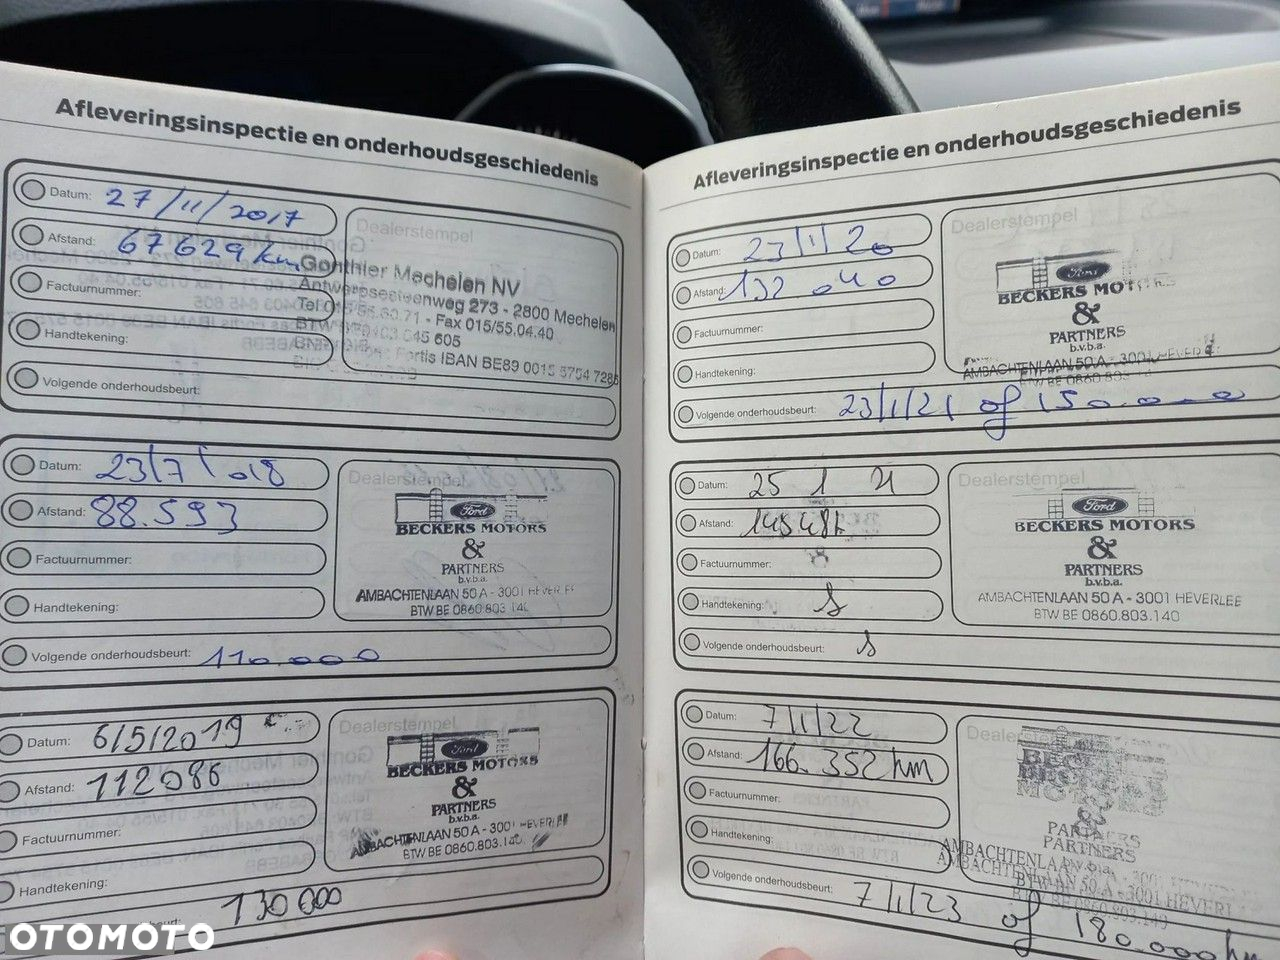 Afleveringsinspectie en onderhoudsgeschiedenis
Datum: 27/11/2017
Afstand: 67629 km
Factuurnummer:
Handtekening:
Volgende onderhoudsbeurt:
Dealerstempel
Gonthier Mechelen NV
Antwerpsesteenweg 273 - 2800 Mechelen
- Fax 015/55.04.40
645 605
Fortis IBAN BE89 0015 5754 7285
Datum: 23/7/018
Afstand: 88.593
Factuurnummer:
Handtekening:
Volgende onderhoudsbeurt: 110.000
Dealerstempel
Ford
BECKERS MOTORS
&
PARTNERS
b.v.b.a.
AMBACHTENLAAN 50 A - 3001 HEVERLEE
BTW BE 0860.803.140
Datum: 6/5/2019
Afstand: 112086
Factuurnummer:
Handtekening:
130 000
Dealerstempel
Ford
BECKERS MOTORS
&
PARTNERS
b.v.b.a.
AMBACHTENLAAN 50 A - 3001 HEVERLEE
BTW BE 0860.803.140
Afleveringsinspectie en onderhoudsgeschiedenis
Datum: 23/1/20
Afstand: 132 040
Factuurnummer:
Handtekening:
Volgende onderhoudsbeurt: 23/1/21 of 150.000
Dealerstempel
Ford
BECKERS MOTORS
&
PARTNERS
b.v.b.a.
AMBACHTENLAAN 50 A - 3001 HEVERLEE
BTW BE 0860.803.14
Datum: 25 1 21
Afstand:
Factuurnummer:
Handtekening:
Volgende onderhoudsbeurt:
Dealerstempel
Ford
BECKERS MOTORS
&
PARTNERS
b.v.b.a.
AMBACHTENLAAN 50 A - 3001 HEVERLEE
BTW BE 0860.803.140
Datum: 7/1/22
Afstand: 166.352 km
Factuurnummer:
Handtekening:
Volgende onderhoudsbeurt: 7/1/23 of 180.000 km
PARTNERS
AMBACHTENLAAN 50 A - 3001 HEVERL
OTOMOTO